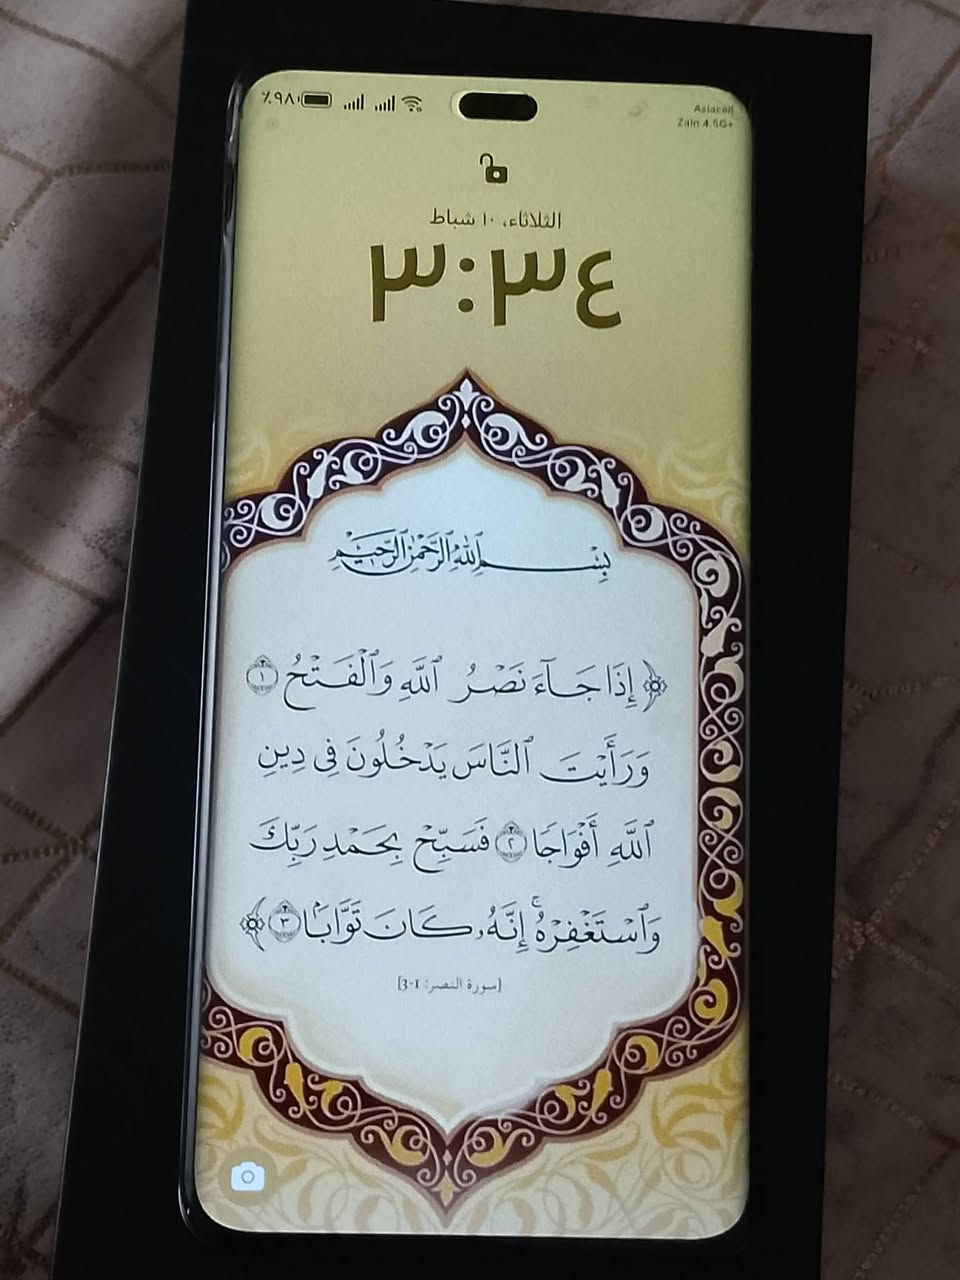 ٪٩٨
Asiacell
Zain 4.5G+
الثلاثاء، ١٠ شباط
٣:٣٤
بِسْمِ ٱللَّهِ ٱلرَّحْمَٰنِ ٱلرَّحِيمِ
﴿إِذَا جَآءَ نَصْرُ ٱللَّهِ وَٱلْفَتْحُ ١
وَرَأَيْتَ ٱلنَّاسَ يَدْخُلُونَ فِى دِينِ
ٱللَّهِ أَفْوَاجًا ٢ فَسَبِّحْ بِحَمْدِ رَبِّكَ
وَٱسْتَغْفِرْهُ ۚ إِنَّهُۥ كَانَ تَوَّابًۢا ٣﴾
[سورة النصر: 1-3]